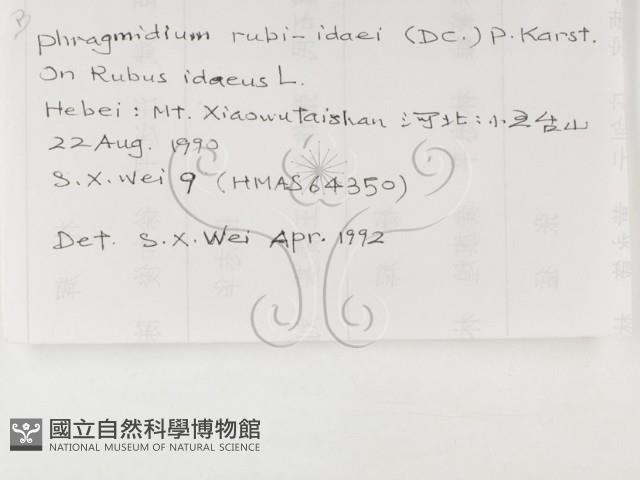 phragmidium rubi-idaei (DC.) P. Karst.
On Rubus idaeus L.
Hebei: Mt. Xiaowutaishan 河北:小五台山
22 Aug. 1990
S.X. Wei 9 (HMAS 64350)
Det. S.X. Wei Apr. 1992
國立自然科學博物館
NATIONAL MUSEUM OF NATURAL SCIENCE